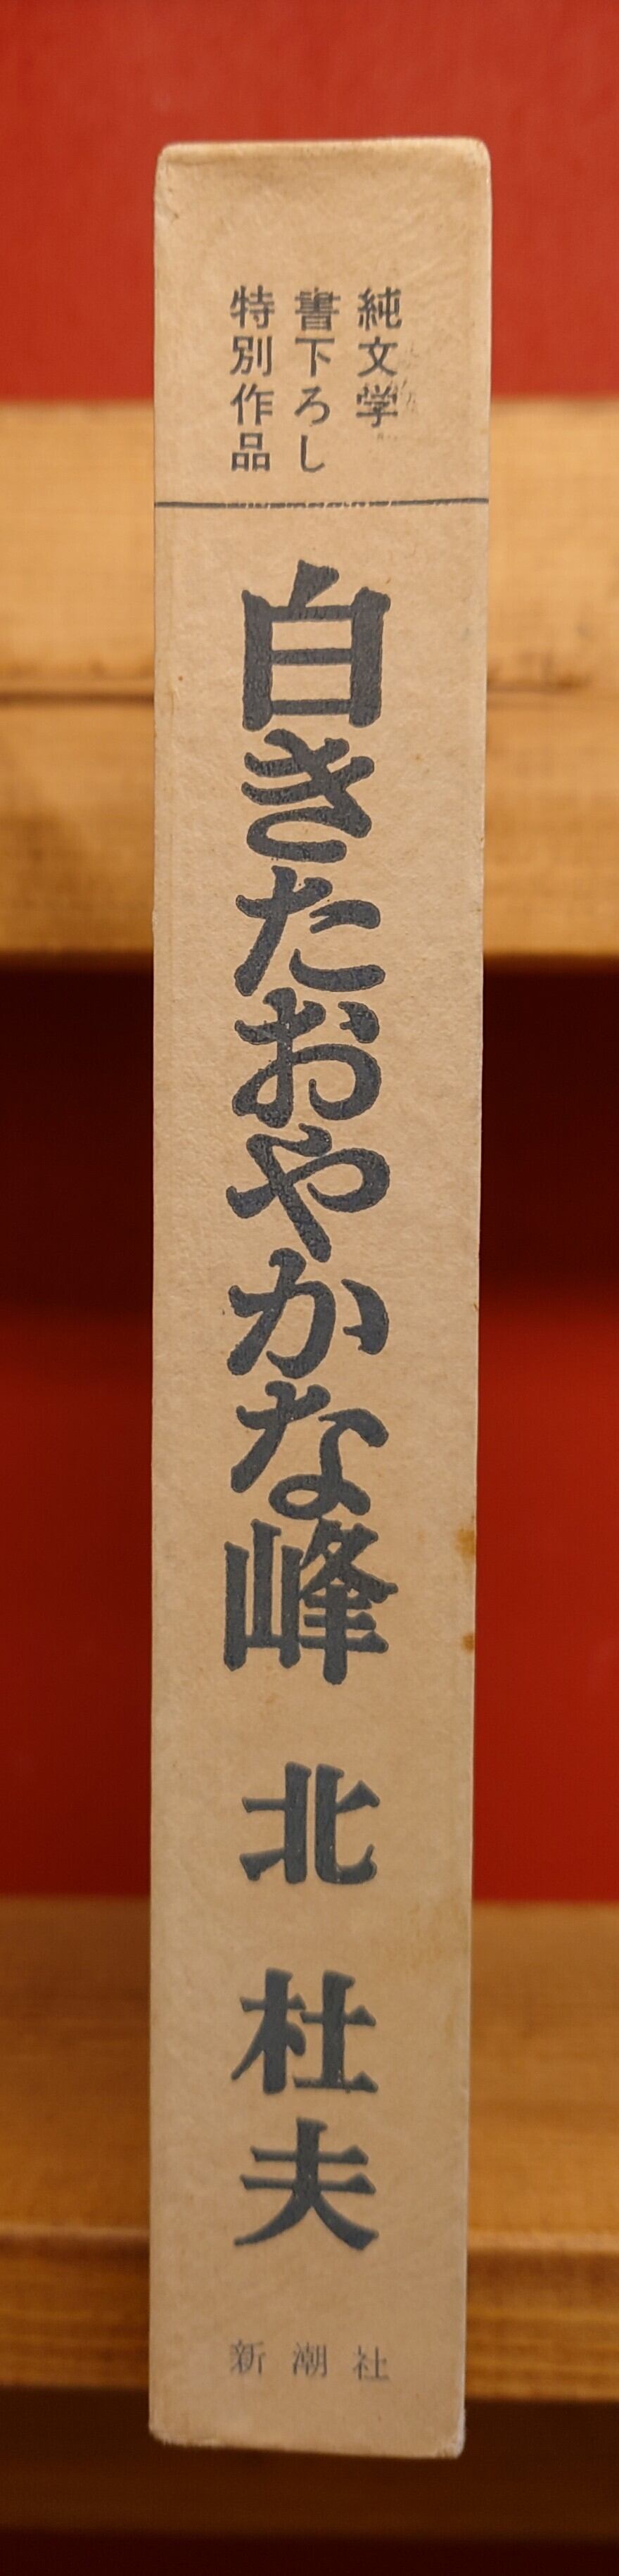 純文学
書下ろし
特別作品
白きたおやかな峰 北 杜夫
新潮社